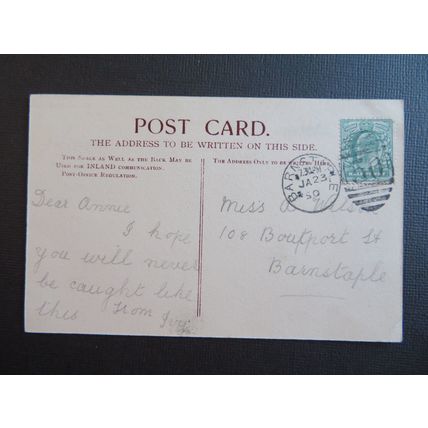 POST CARD.
THE ADDRESS TO BE WRITTEN ON THIS SIDE.
THIS SPACE AS WELL AS THE BACK MAY BE
USED FOR INLAND COMMUNICATION.
POST-OFFICE REGULATION.
THE ADDRESS ONLY TO BE WRITTEN HERE.
JA 23
Dear Annie
I hope
you will never
be caught like
this From Ivy
Miss
108 Boutport St
Barnstaple